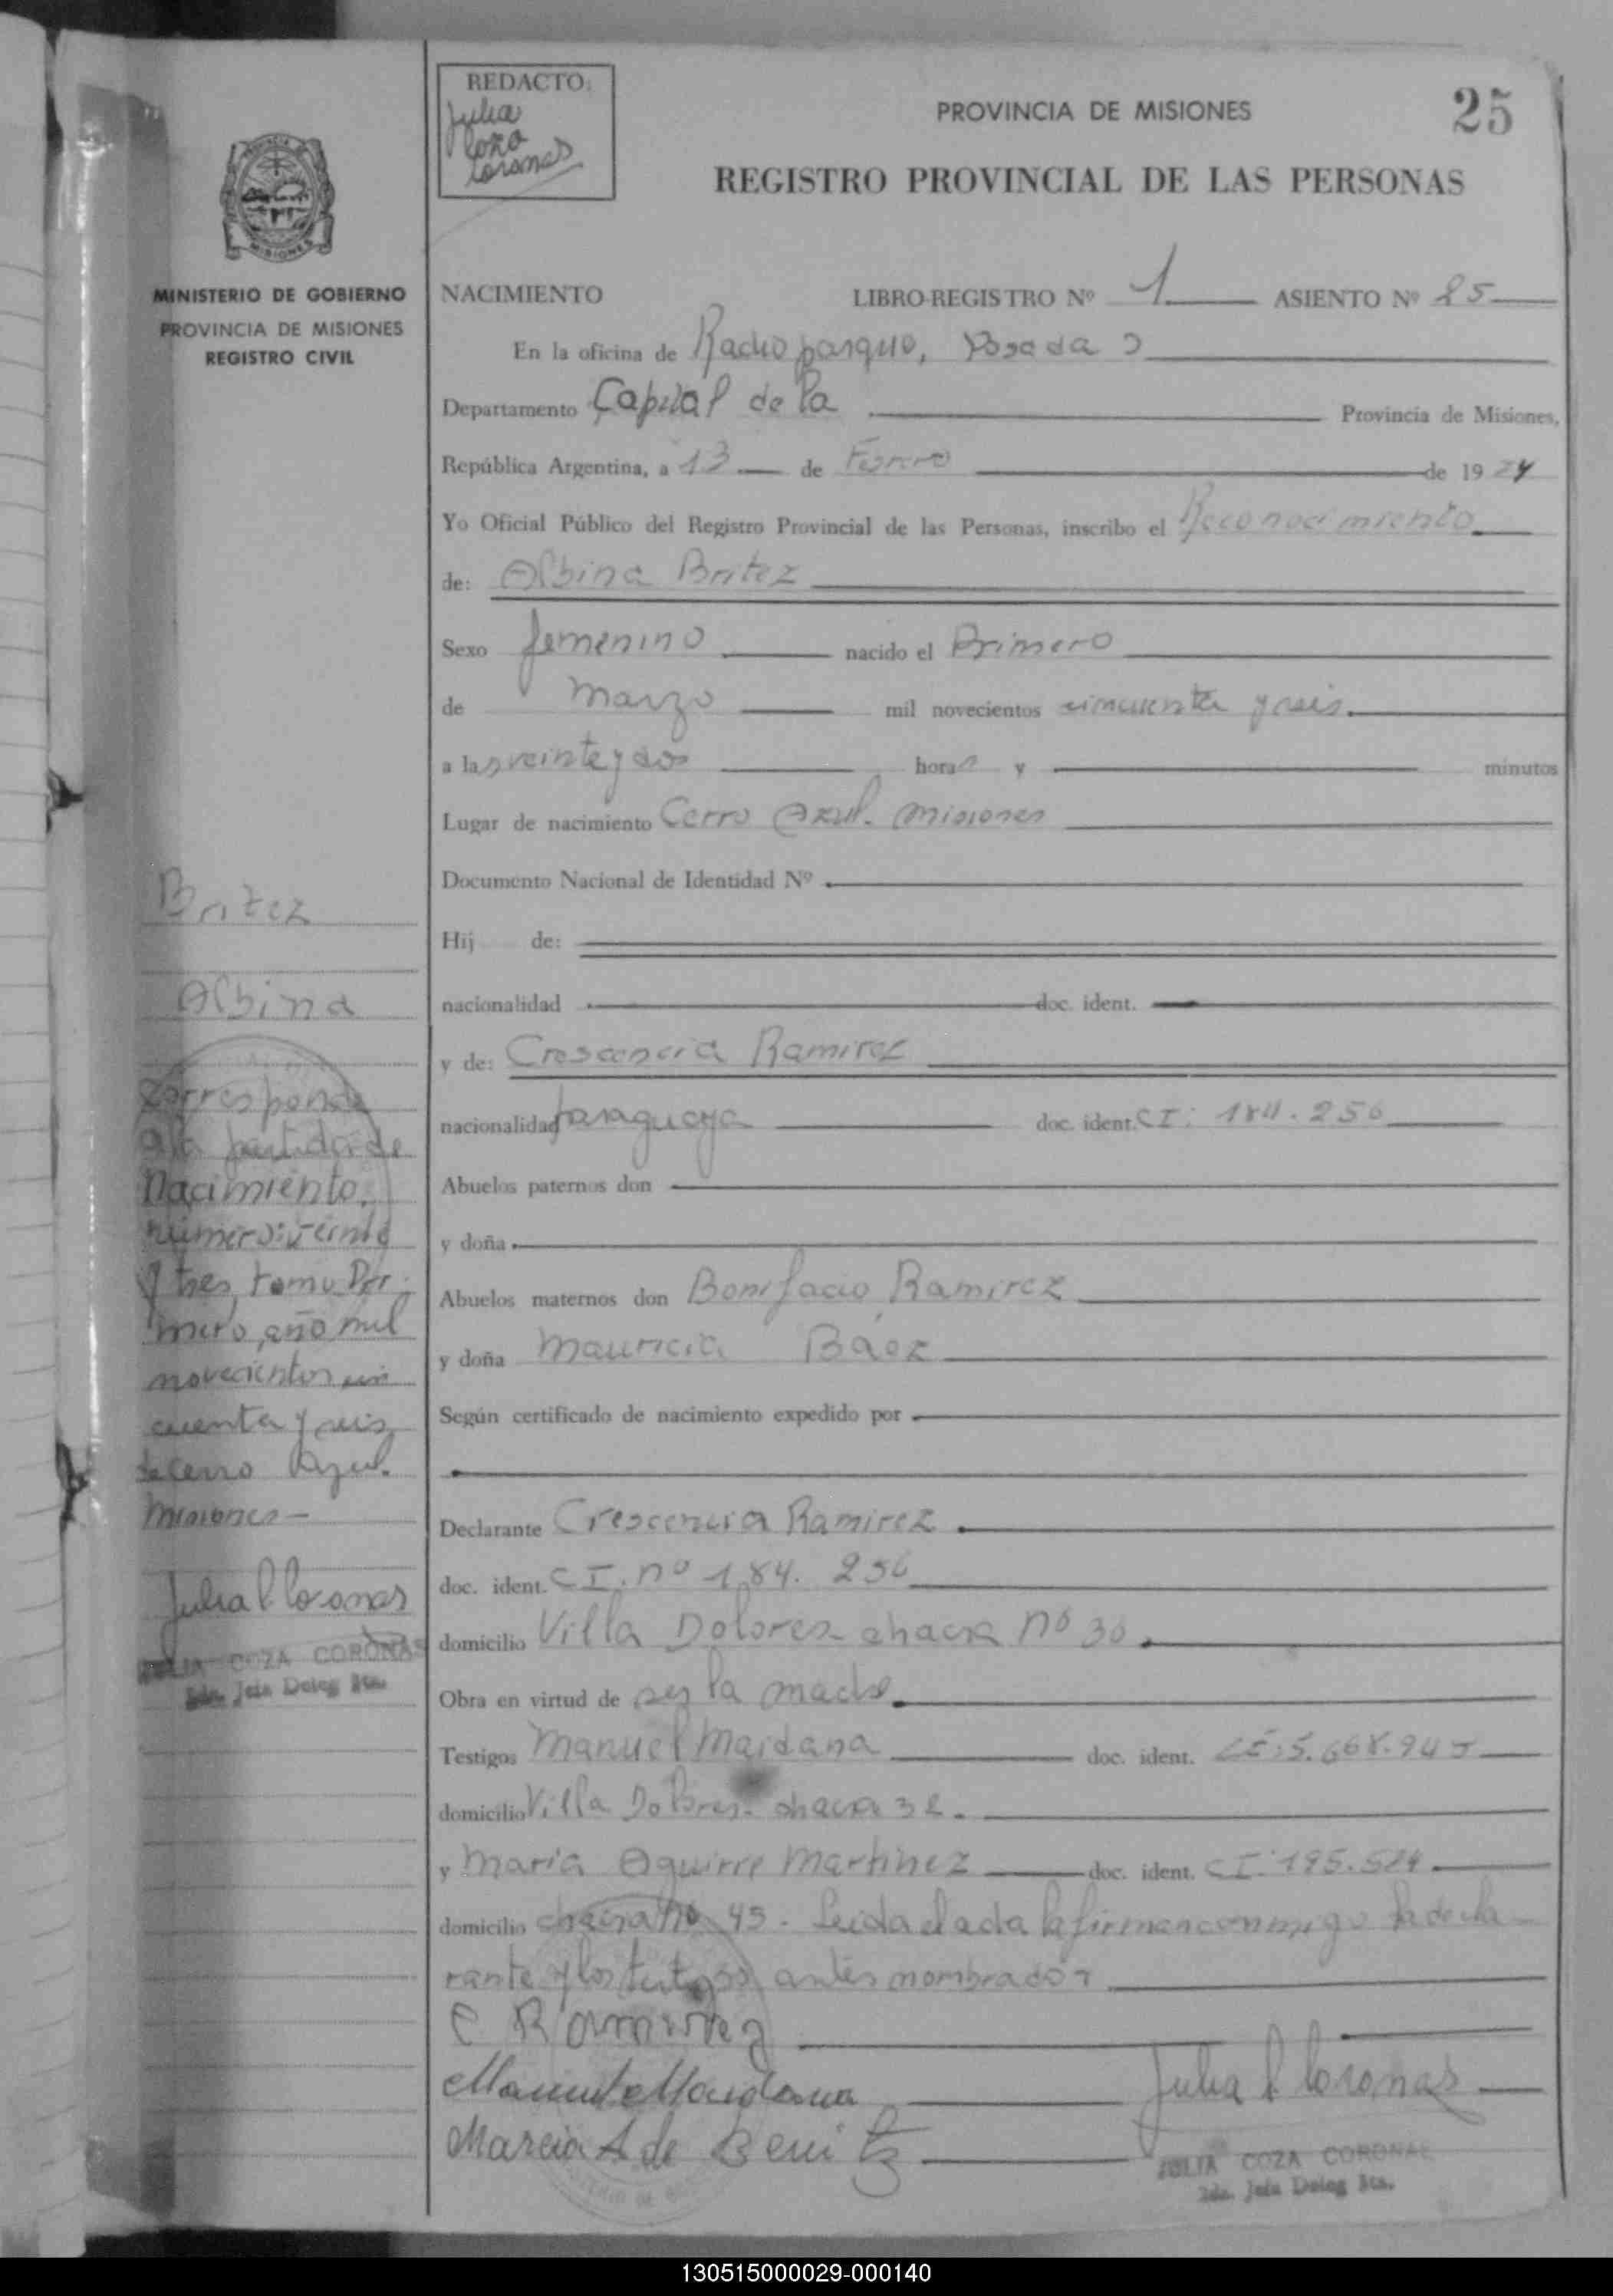 REDACTO:
Julia
Coza
Coronas
PROVINCIA DE MISIONES
25
REGISTRO PROVINCIAL DE LAS PERSONAS
MINISTERIO DE GOBIERNO
PROVINCIA DE MISIONES
REGISTRO CIVIL
NACIMIENTO LIBRO-REGISTRO Nº 1 ASIENTO Nº 25
En la oficina de Radio parque, Posadas
Departamento Capital de la Provincia de Misiones,
República Argentina, a 13 de de 1974
Yo Oficial Público del Registro Provincial de las Personas, inscribo el Reconocimiento
de: Albina Britez
Sexo femenino nacido el Primero
de Marzo mil novecientos cincuenta y seis
a las veinte y dos horas y minutos
Lugar de nacimiento Cerro Azul. Misiones
Documento Nacional de Identidad Nº
Hij de:
nacionalidad doc. ident.
y de: Crescencia Ramirez
nacionalidad Paraguaya doc. ident. CI: 184.256
Abuelos paternos don
y doña
Abuelos maternos don Bonifacio Ramirez
y doña Mauricia Báez
Según certificado de nacimiento expedido por
Declarante Crescencia Ramirez
doc. ident. CI. nº 184. 256
domicilio Villa Dolores chacra nº 30
Obra en virtud de ser la madre
Testigos Manuel Maidana doc. ident. 5.668.945
domicilio Villa Dolores. chacra 32.
y Maria Aguirre Martinez doc. ident. CI: 195.524
domicilio chacra nº 45. Leida el acta la firman conmigo la decla
rante y los testigos antes nombrados
C Ramirez
Manuel Maidana
Julia C Coronas
Marcia A de Benitez
JULIA COZA CORONAS
2da. Jefa Deleg
Britez
Albina
Corresponde
a la partida de
Nacimiento,
número: veinte
y tres, tomo Pri
mero, año mil
novecientos cin
cuenta y seis
de Cerro Azul.
Misiones -
Julia C Coronas
JULIA COZA CORONAS
2da. Jefa Deleg
130515000029-000140